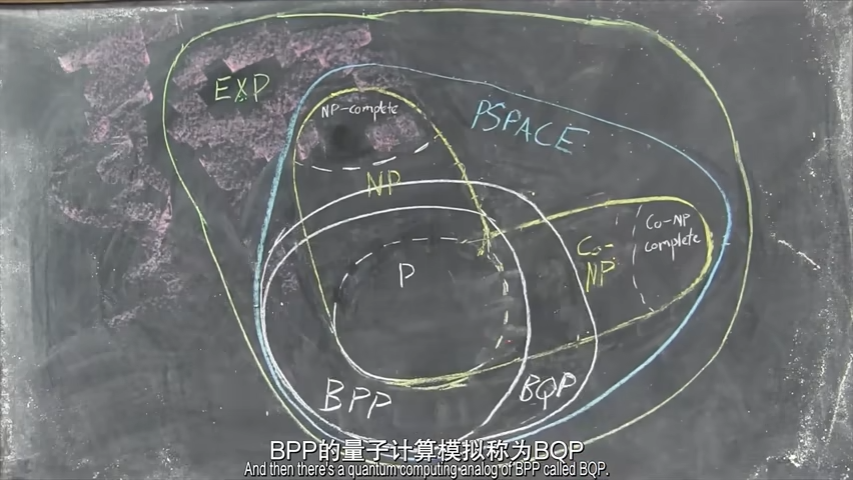 EXP
NP-complete
PSPACE
NP
Co-NP
complete
Co-
NP
P
BPP
BQP
BPP的量子计算模拟称为BQP
And then there's a quantum computing analog of BPP called BQP.